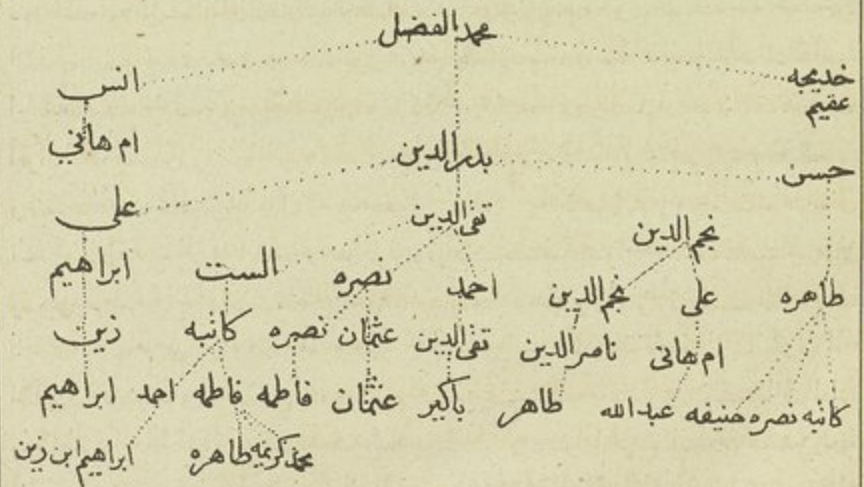 محمد الفضل
خديجه انس
عقيم
ام هاني
حسن بدر الدين على
نجم الدين تقى الدين
طاهره على نجم الدين احمد نصره الست ابراهيم
ام هانى ناصر الدين تقى الدين عثمان نصره كاتبه زين
كاتبه نصره حنيفه عبد الله طاهر باكير عثمان فاطمه فاطمه احمد ابراهيم
محمد كريمه طاهره ابراهيم ابن زين